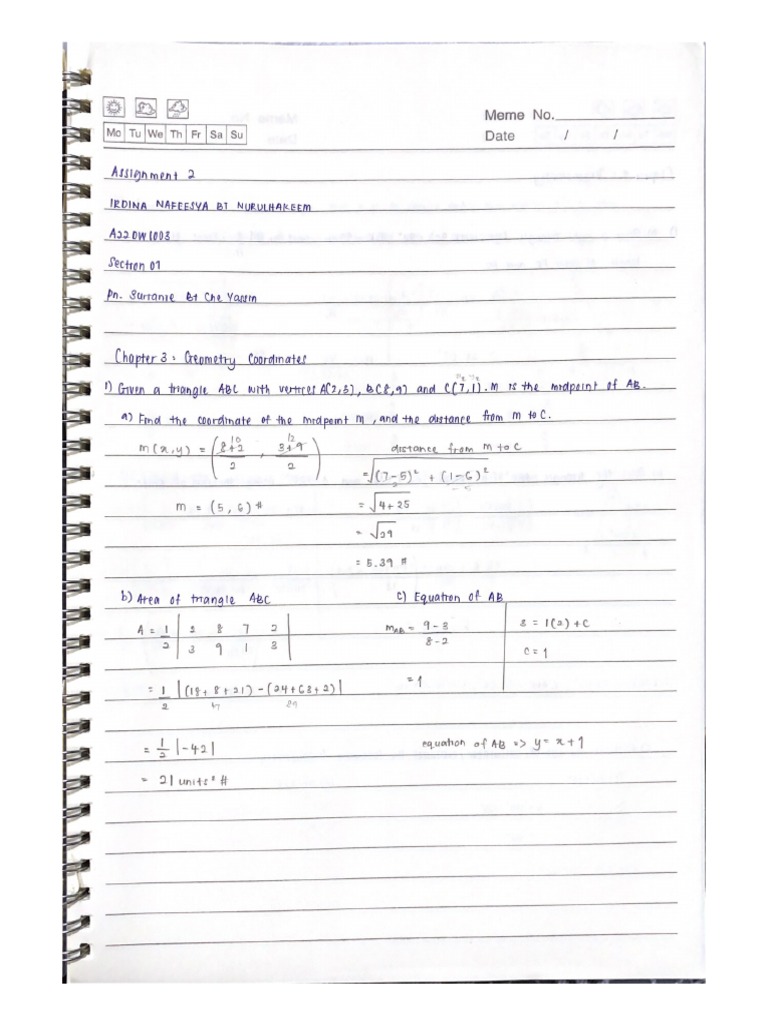 Meme No.
Mo Tu We Th Fr Sa Su
Date / /
Assignment 2
IRDINA NAFEESYA BT NURULHAKEEM
A22DW1003
Section 01
Pn. Surranie Bt Che Yassin
Chapter 3 : Geometry Coordinates
1) Given a triangle ABC with vertices A(2,3), B(8,9) and C(7,1). M is the midpoint of AB.
a) Find the coordinate of the midpoint M, and the distance from M to C.
m(x,y) = (8+2/2 , 3+9/2)
10 12
distance from m to C
= √(7-5)² + (1-6)²
2 -5
m = (5,6) #
= √4+25
= √29
= 5.39 #
b) Area of triangle ABC
A = 1/2 | 2 8 7 2
3 9 1 3 |
= 1/2 |(18+8+21)-(24+63+2)|
47 89
= 1/2 |-42|
= 21 units² #
c) Equation of AB
mAB = 9-3/8-2
= 1
3 = 1(2)+C
C = 1
equation of AB => y = x+1